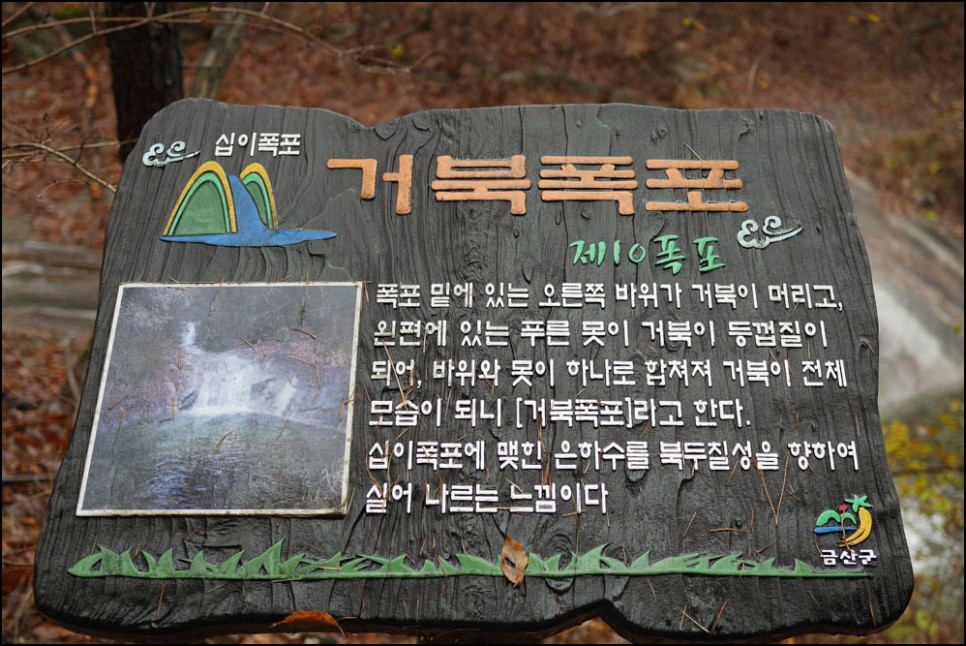 십이폭포
거북폭포
제10폭포
폭포 밑에 있는 오른쪽 바위가 거북이 머리고,
왼편에 있는 푸른 못이 거북이 등껍질이
되어, 바위와 못이 하나로 합쳐져 거북이 전체
모습이 되니 [거북폭포]라고 한다.
십이폭포에 맺힌 은하수를 북두칠성을 향하여
실어 나르는 느낌이다
금산군